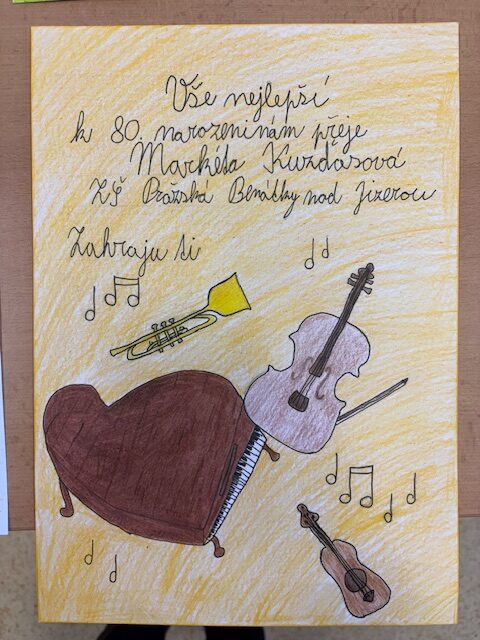 Vše nejlepší
k 80. narozeninám přeje
Markéta Kuzdasová
ZŠ Pražská Benátky nad Jizerou
Zahraju ti